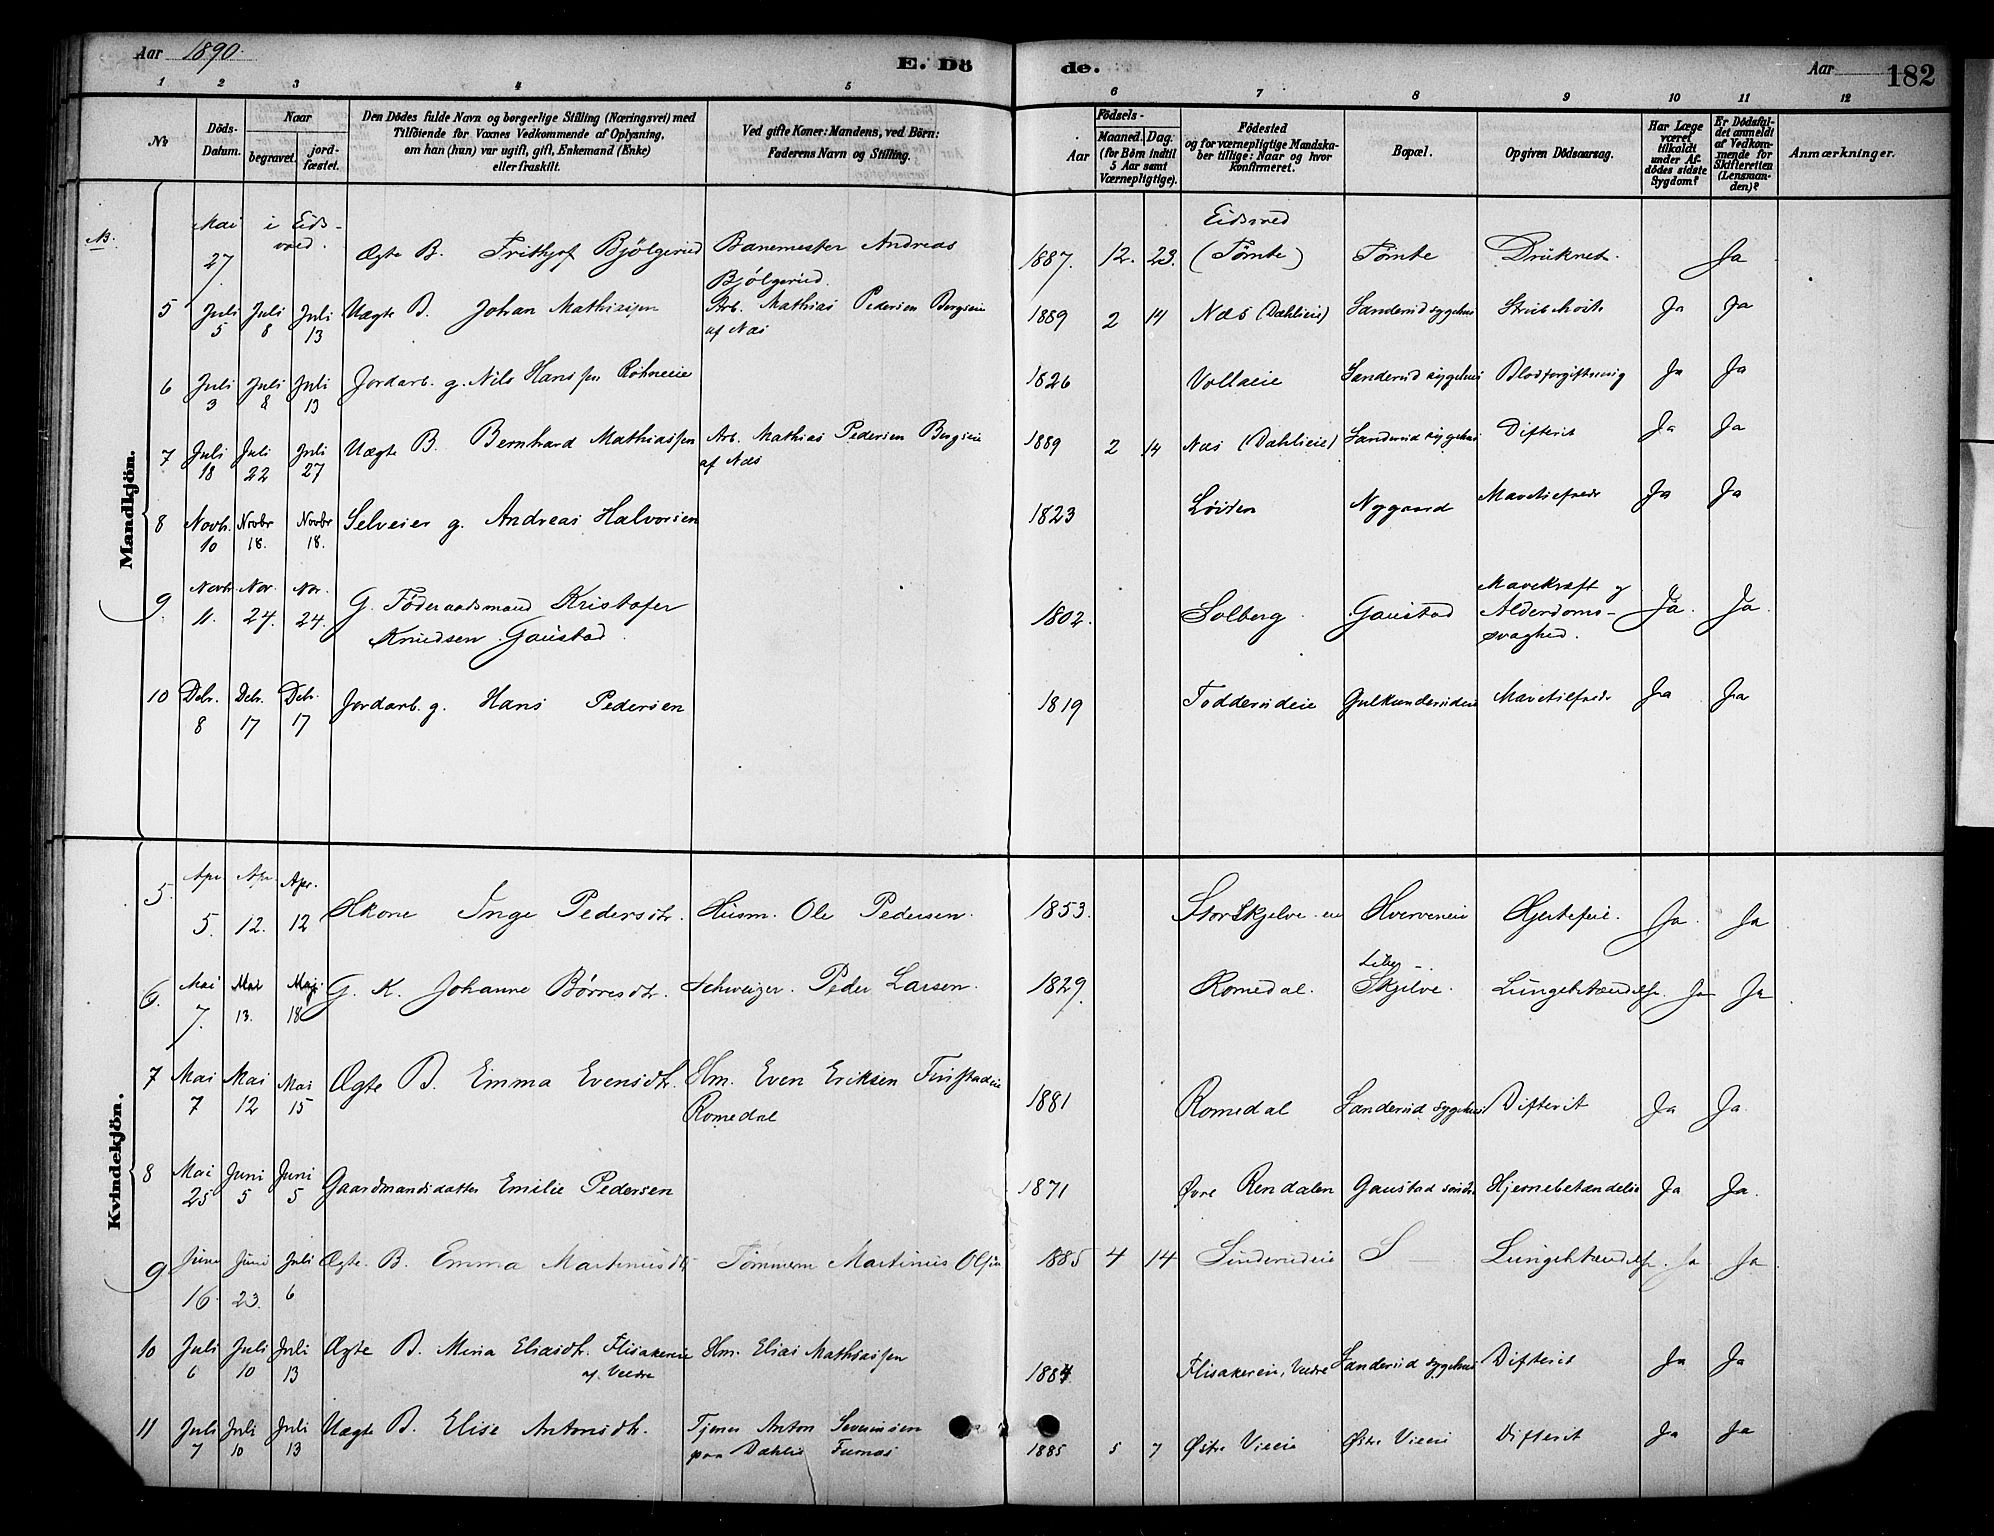 Aar 1890.
E. Dö de.
Aar 182
1 2 3 4 5 6 7 8 9 10 11 12
No
Döds-Datum.
Naar
begravet.
jord-fæstet.
Den Dödes fulde Navn og borgerlige Stilling (Næringsvei) med
Tilföiende for Voxnes Vedkommende af Oplysning,
om han (hun) var ugift, gift, Enkemand (Enke)
eller fraskilt.
Ved gifte Koner: Mandens, ved Börn:
Faderens Navn og Stilling.
Födsels-
Aar
Maaned. Dag.
(for Börn indtil
5 Aar samt
Værnepligtige).
Födested
og for værnepligtige Mandska-
ber tillige: Naar og hvor
konfirmeret.
Bopæl.
Opgiven Dödsaarsag.
Har Læge
været
tilkaldt
under Af-
dödes sidste
Sygdom?
Er Dödsfal-
det anmeldt
af Vedkom-
mende for
Skifteretten
(Lensman-
den)?
Anmærkninger.
Mandkjön.
Mai 27 i Eids-vold. Ægte B. Frithjof Bjölgerud Banemester Andreas Bjölgerud. 1887. 12. 23. Eidsvold (Tömte) Tömte Druknet. Ja
5 Juli 5 Juli 8 Juli 13 Uægte B. Johan Mathiassen Arb. Mathias Pedersen Bergseie af Næs 1889 2 14 Næs (Dæhlieie) Sanderud sygehus Strubehoste Ja Ja
6 Juli 3 Juli 8 Juli 13 Jordarb. g. Nils Hanssen Röhneeie 1826 Vollaeie Sanderud sygehus Blodforgiftning Ja Ja
7 Juli 18 Juli 22 Juli 27 Uægte B. Bernhard Mathiassen Arb. Mathias Pedersen Bergseie af Næs 1889 2 14 Næs (Dæhlieie) Sanderud sygehus Difterit Ja Ja
8 Novbr. 10 Novbr 18. Novbr 18. Selveier g. Andreas Halvorsen 1823 Løiten Nygaard Mavetilfælde Ja Ja
9. Novbr 11. Nov. 24. Nov. 24. G. Föderaadsmand Kristofer Knudsen Gaustad. 1802. Solberg Gaustad Mavekræft og Alderdoms-svaghed. Ja. Ja.
10 Debr. 8 Debr. 17 Debr. 17 Jordarb. g. Hans Pedersen 1819 Todderudeie Gulkunderudeie Mavetilfælde Ja Ja
Kvindekjön.
5. Apr 5. Apr 12. Apr. 12 Hkone Inge Pedersdtr. Husm. Ole Pedersen. 1853. Storskjelve eie Hverveneie Hjertefeil. Ja. Ja
6. Mai 7. Mai 13. Maj. 18 G. K. Johanne Børresdtr. Schweizer. Peder Larsen. 1829. Romedal. Skjelve. Lungebetændelse. Ja Ja
7 Mai 7 Mai 12 Mai 15 Ægte B. Emma Evensdtr. Hm. Even Eriksen Finstadeie Romedal 1881 Romedal Sanderud sygehus Difterit Ja Ja.
8 Mai 25 Juni 5 Juni 5 Gaardmandsdatter Emilie Pedersen 1871 Øvre Rendalen Gaustad søndre Hjernebetændelse Ja Ja.
9 Juni 16. Juni 23. Juli 6 Ægte. B. Emma Martinusdtr Tømmerm Martinus Olsen 1885 4 14 Sinderudeie S — Lungebetændelse. Ja Ja
10 Juli 6 Juli 10 Juli 13 Ægte B. Mina Eliasdtr. Flisakereie af Veldre Hm. Elias Mathiassen 1884. Flisakereie, Veldre Sanderud sygehus Difterit Ja Ja
11 Juli 7 Juli 10 Juli 13 Uægte B. Elise Antonsdtr. Tjener Anton Severinsen paa Dæhlie Furnæs 1885 5 7 Østre Vieeie Østre Vieeie Difterit Ja Ja